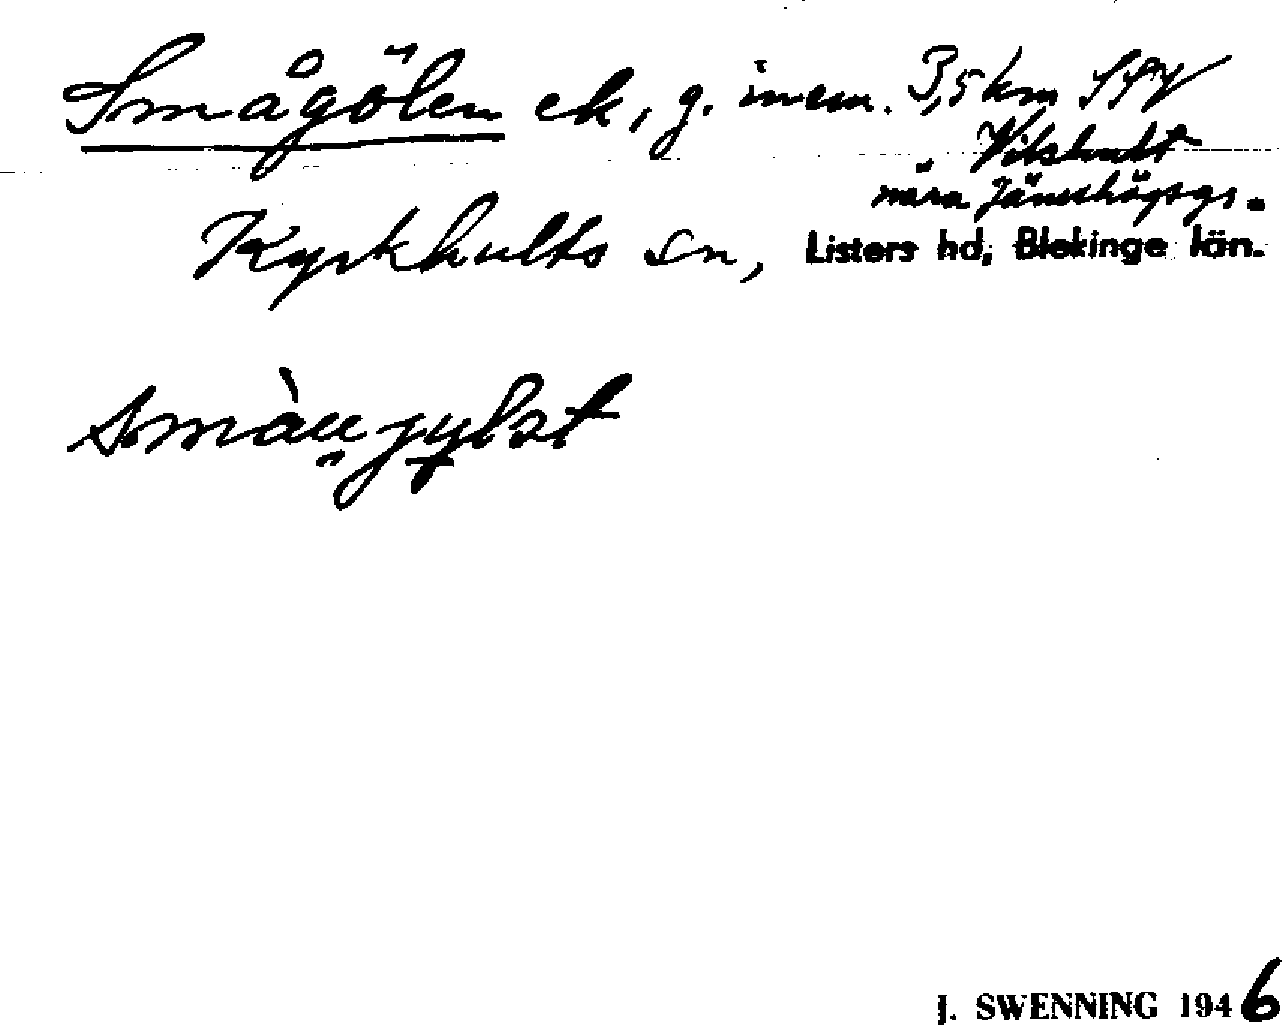 Smågölen ek, g. inem. 3,5 km SSV
" Vilshult
nära Jämshögsgr.
Kyrkhults sn, Listers hd, Blekinge län.
J. SWENNING 1946